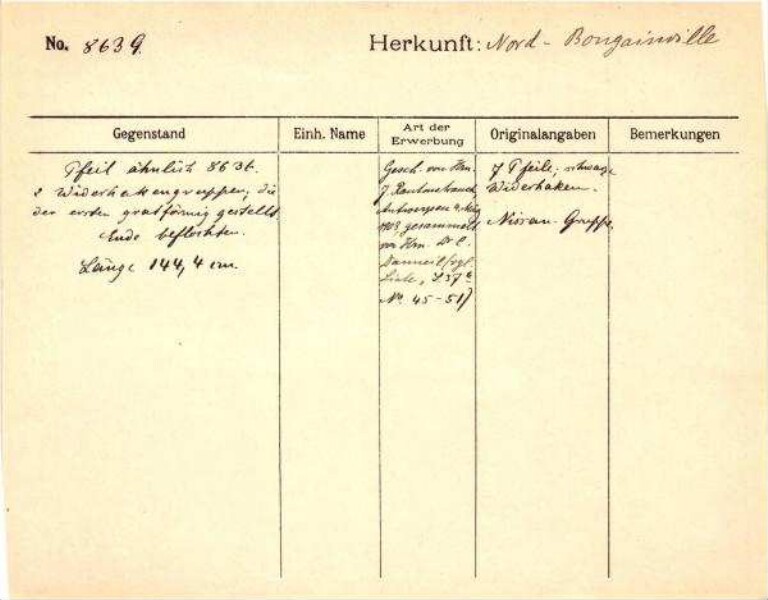 No. 8639
Herkunft: Nord-Bougainville
Gegenstand
Einh. Name
Art der Erwerbung
Originalangaben
Bemerkungen
Pfeil ähnlich 863
2 Widerhakengruppen; die
der ersten gratförmig gestellt.
Ende beflochten.
Länge 144,4 cm.
Gesch. von Hrn.
J.
Antwerpen 4. Mai
1908, gesammelt
von Hrn. Dr C.
Danneil (vgl.
Liste, S.37a
No. 45-51)
7 Pfeile; schwarze
Widerhaken.
Nissan-Gruppe.